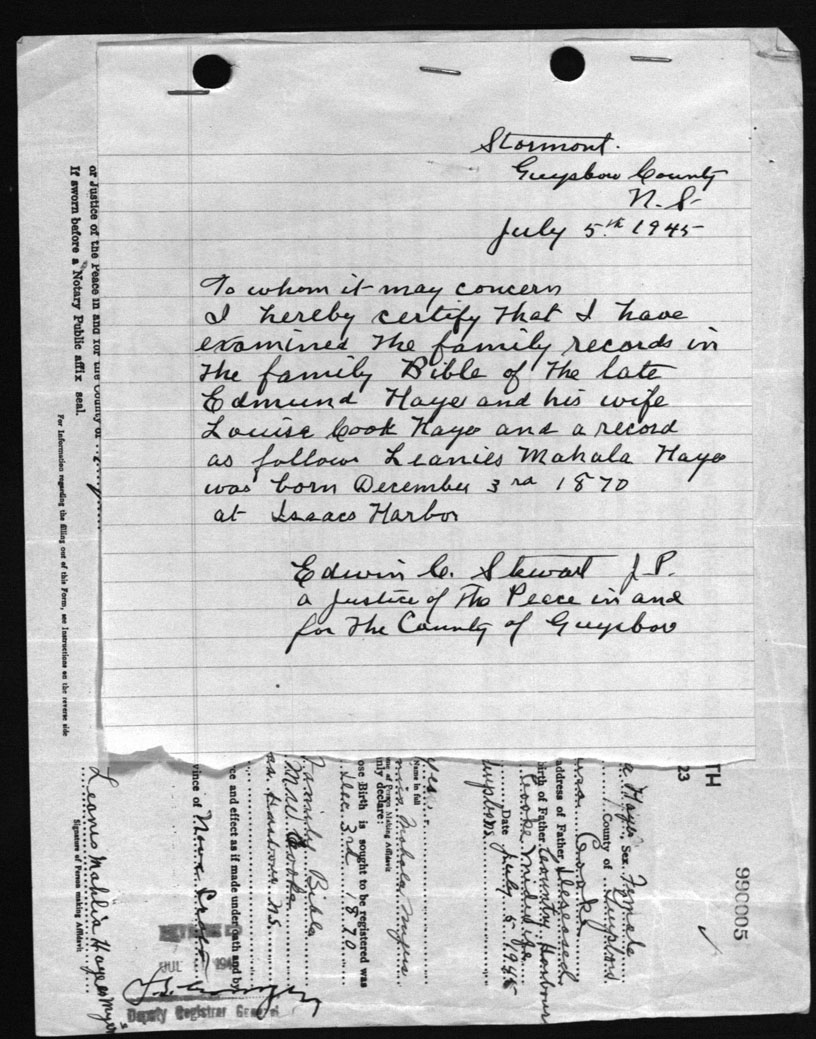 Stormont.
Guysboro County
N.S.
July 5th 1945
To whom it may concern
I hereby certify that I have
examined the family records in
the family Bible of the late
Edmund Haye and his wife
Louise Cook Haye and a record
as follows Leanies Mahala Haye
was born December 3rd 1870
at Isaacs Harbor
Edwin C. Stewart J.P.
a Justice of the Peace in and
for the County of Guysboro
or Justice of the Peace in and for the County of
If sworn before a Notary Public affix seal.
For Information regarding the filling out of this Form, see Instructions on the reverse side
TH
23
990005
Haye Sex Female
County of Guysboro
Cooke
address of Father Deceased
Birth of Father Country Harbour
Cooke Midwife
Date July 5 1945
Guysboro
yes
Name in full
Mahala Myers
ame of Person Making Affidavit
nly declare:
ose Birth is sought to be registered was
Dec. 3rd 1870
Family Bible
Harbour NS
ce and effect as if made under oath and by
vince of Nova Scotia
JUL
Deputy Registrar General
Leanis Mahlia Hayes Myers
Signature of Person making Affidavit